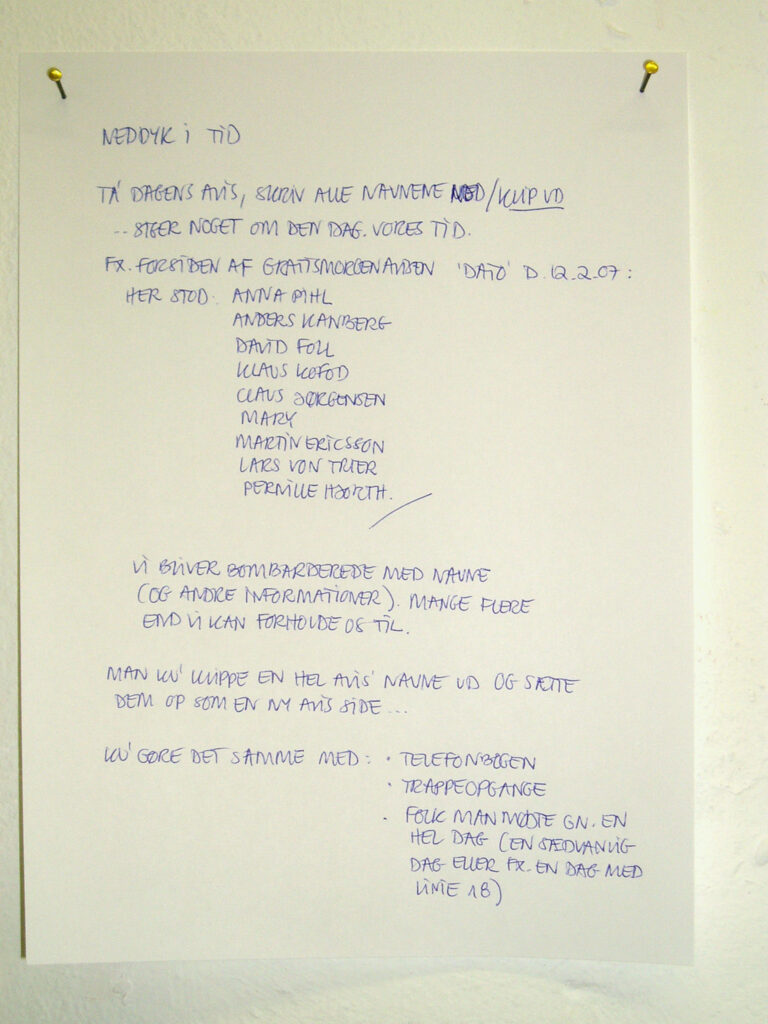 NEDDYK i TiD
TA' DAGENS AViS, SKRiV ALLE NAVNENE NED/KLIP UD
... SIGER NOGET OM DEN DAG. VORES TiD.
FX. FORSIDEN AF GRATiSMORGENAVISEN 'DATO' D. 12.2.07:
HER STOD: ANNA PIHL
ANDERS KANBERG
DAVID FOLL
KLAUS KOFOD
CLAUS JØRGENSEN
MARY
MARTIN ERICSSON
LARS VON TRIER
PERNILLE HJORTH.
Vi BLIVER BOMBARDEREDE MED NAVNE
(OG ANDRE INFORMATIONER). MANGE FLERE
END Vi KAN FORHOLDE OS TIL.
MAN KU' KLIPPE EN HEL AVIS' NAVNE UD OG SÆTTE
DEM OP SOM EN NY AVIS SIDE...
KU' GØRE DET SAMME MED: • TELEFONBOGEN
• TRAPPEOPGANGE
• FOLK MAN MØDTE GN. EN
HEL DAG (EN SÆDVANLIG
DAG ELLER FX. EN DAG MED
LINIE 18)